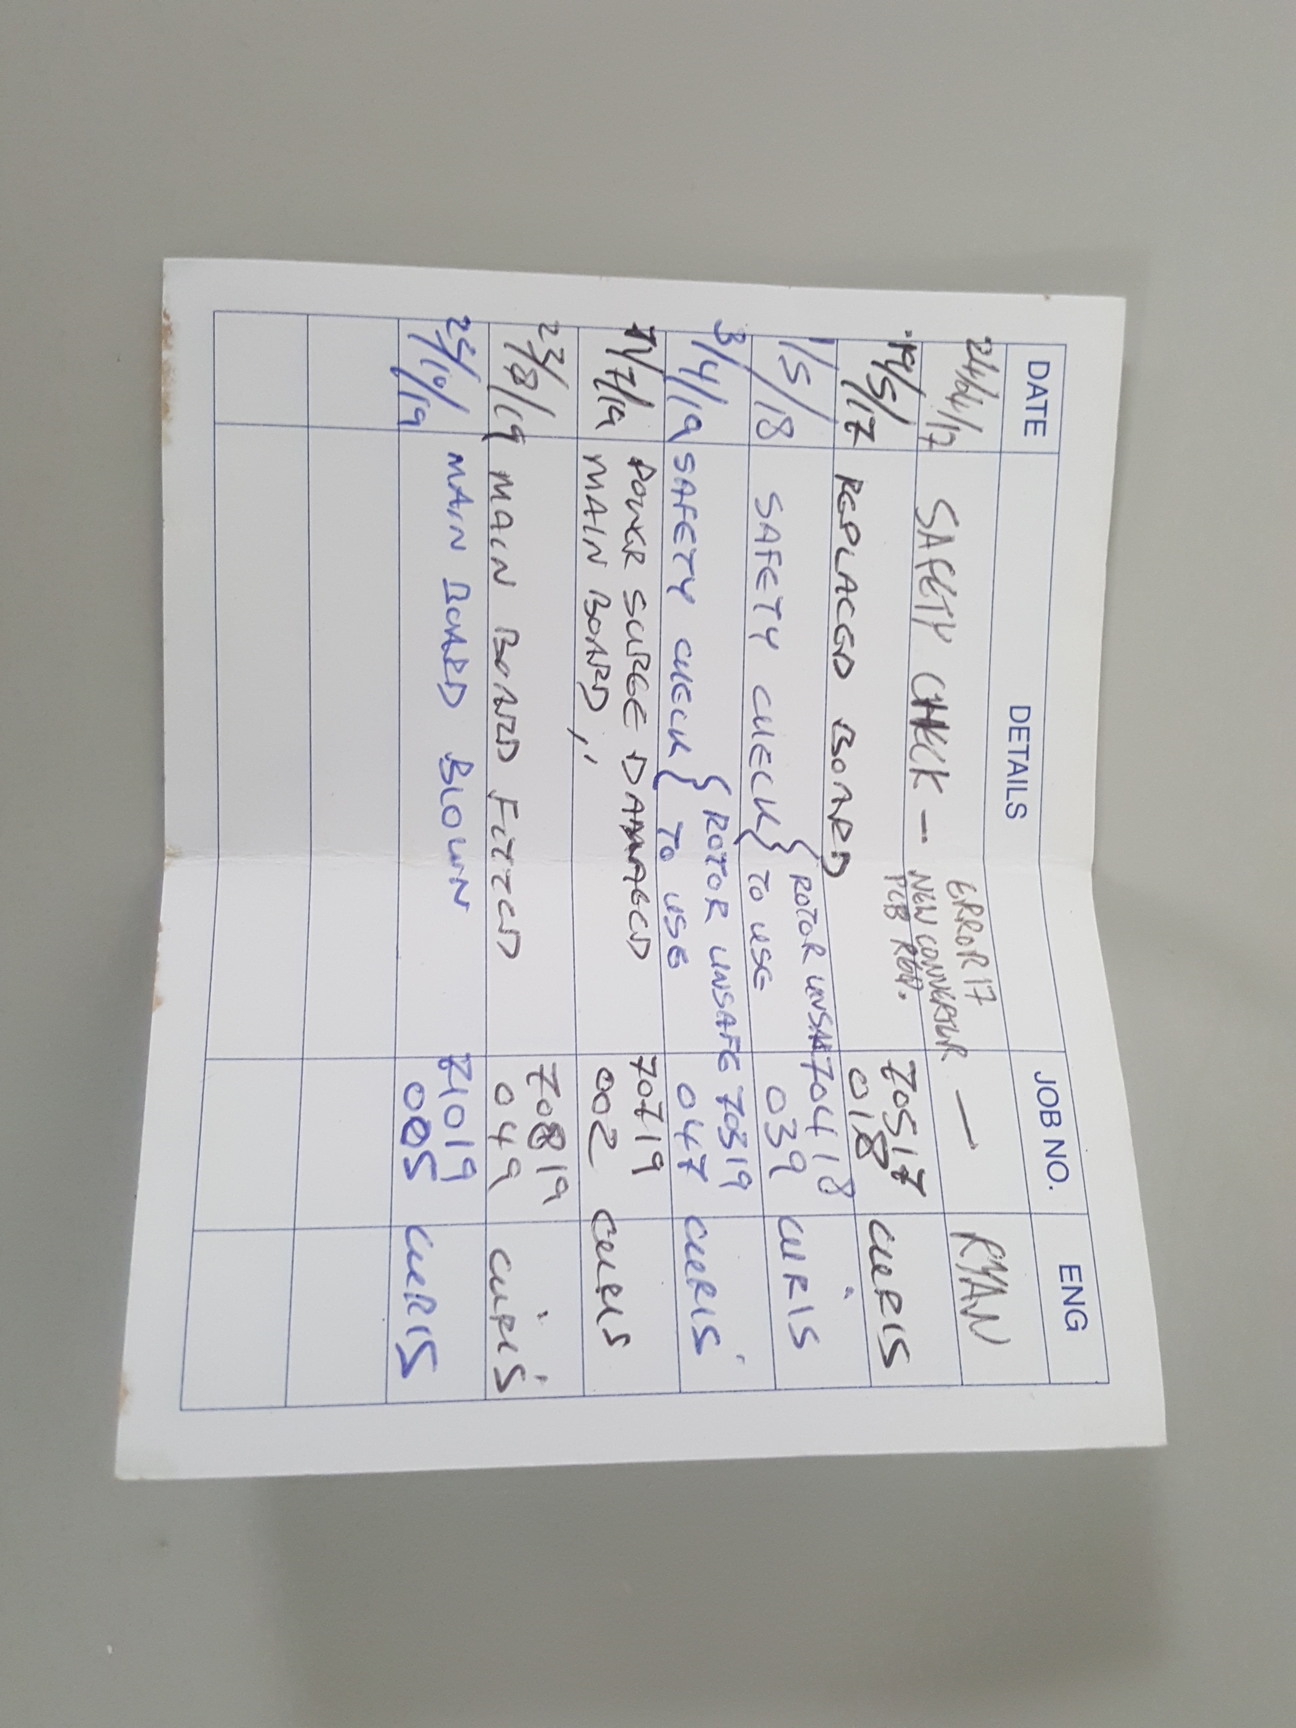 DATE DETAILS JOB NO. ENG
24/04/17 SAFETY CHECK — ERROR 17 — RYAN
NEW CONVERTOR
PCB REQ.
19/5/17 REPLACED BOARD 70517 CHRIS
018
1/5/18 SAFETY CHECK { ROTOR UNSAFE 70418 CHRIS
TO USE 039
3/4/19 SAFETY CHECK { ROTOR UNSAFE 70319 CHRIS
TO USE 047
/7/19 POWER SURGE DAMAGED 70719 CHRIS
MAIN BOARD,, 002
23/8/19 MAIN BOARD FITTED 70819 CHRIS
049
25/10/19 MAIN BOARD BLOWN 71019 CHRIS
005